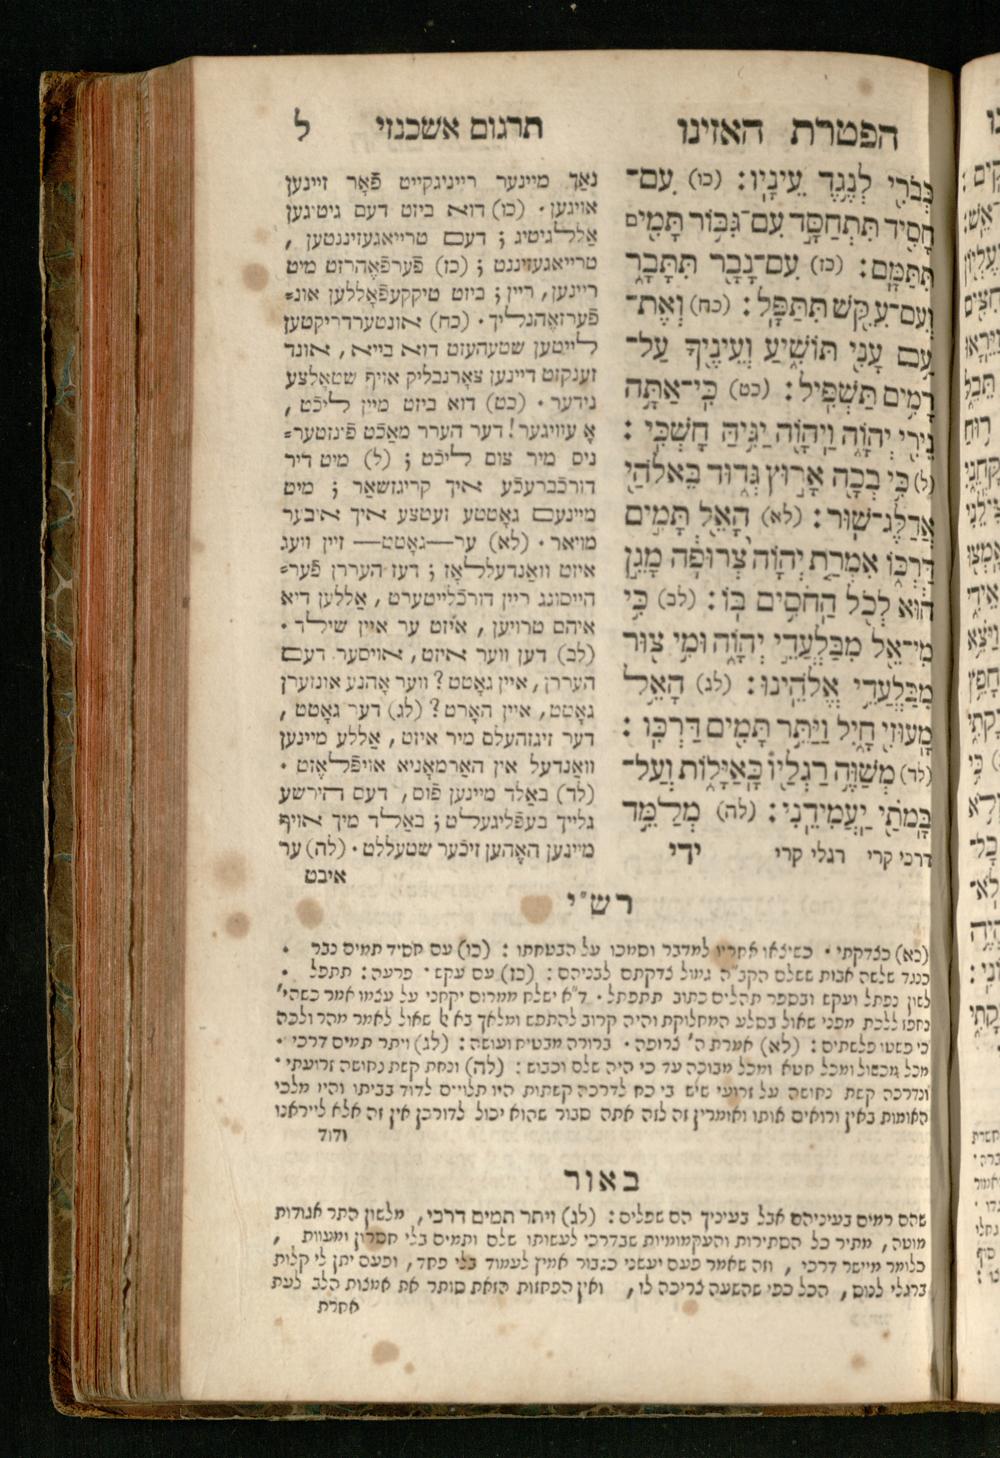 הפטרת האזינו
כְּבֹרִי לְנֶגֶד עֵינָיו: (כו) עִם־
חָסִיד תִּתְחַסָּד עִם־גִּבּוֹר תָּמִים
תִּתַּמָּם: (כז) עִם־נָבָר תִּתָּבָר
וְעִם־עִקֵּשׁ תִּתַּפָּל: (כח) וְאֶת־
עַם עָנִי תּוֹשִׁיעַ וְעֵינֶיךָ עַל־
רָמִים תַּשְׁפִּיל: (כט) כִּי־אַתָּה
נֵירִי יְהוָֹה וַיהוָֹה יַגִּיהַּ חָשְׁכִּי:
(ל) כִּי בְכָה אָרוּץ גְּדוּד בֵּאלֹהַי
אֲדַלֶּג־שׁוּר: (לא) הָאֵל תָּמִים
דַּרְכּוֹ אִמְרַת יְהוָֹה צְרוּפָה מָגֵן
הוּא לְכֹל הַחֹסִים בּוֹ: (לב) כִּי
מִי־אֵל מִבַּלְעֲדֵי יְהוָֹה וּמִי צוּר
מִבַּלְעֲדֵי אֱלֹהֵינוּ: (לג) הָאֵל
מָעוּזִּי חָיִל וַיַּתֵּר תָּמִים דַּרְכִּו:
(לד) מְשַׁוֶּה רַגְלַיוֹ כָּאַיָּלוֹת וְעַל־
בָּמֹתַי יַעֲמִידֵנִי: (לה) מְלַמֵּד
דרכי קרי רגלי קרי ידי
תרגום אשכנזי ל
נאַך מיינער רייניגקייט פֿאָר זיינען
אויגען. (כו) דוא ביזט דעם גיטיגען
אַללגיטיג; דעם טרייאגעזיננטען,
טרייאגעזיננט; (כז) פֿערפֿאֶהרזט מיט
ריינען, ריין; ביזט טיקקעפֿאָללען אונ=
פֿערזאֶהנליך. (כח) אונטערדריקטען
לייטען שטעהעזט דוא בייא, אונד
זענקזט דיינען צאָרנבליק אויף שטאָלצע
נידער. (כט) דוא ביזט מיין ליכֿט,
אָ עוויגער! דער הערר מאַכֿט פֿינזטער=
ניס מיר צום ליכֿט; (ל) מיט דיר
דורכֿברעכֿע איך קריגזשאַר; מיט
מיינעם גאָטטע זעטצע איך איבער
מויאר. (לא) ער—גאָטט— זיין וועג
איזט וואַנדעללאָז; דעז העררן פֿער=
הייסונג ריין דורכֿלייטערט, אַללען דיא
איהם טרויען, איזט ער איין שילד.
(לב) דען ווער איזט, אויסער דעם
העררן, איין גאָטט? ווער אָהנע אונזערן
גאָטט, איין האָרט? (לג) דער גאָטט,
דער זיגזהעלם מיר איזט, אַללע מיינען
וואַנדעל אין האַרמאָניא אויפֿלאֶזט.
(לד) באַלד מיינען פֿוס, דעם הירשע
גלייך בעפֿליגעלט; באַלד מיך אויף
מיינען האֶהען זיכֿער שטעללט. (לה) ער
איבט
רש״י
(כא) כצדקתי. כשיצאו אחריו למדבר וסמכו על הבטחתו: (כו) עם חסיד תמים נבר.
כנגד שלשה אבות ששלם הקב״ה גמול צדקתם לבניהם: (כז) עם עקש. פרעה: תתפל.
לשון נפתל ועקש ובספר תהלים כתוב תתפתל. ד״א ישלח ממרום יקחני על עצמו אמר כשהי׳
נחפז ללכת מפני שאול בסלע המחלוקת והיה קרוב להתפש ומלאך בא אל שאול לאמר מהר ולכה
כי פשטו פלשתים: (לא) אמרת ה׳ צרופה. ברורה מבטיח ועושה: (לג) ויתר תמים דרכי.
מכל מכשול ומכל חטא ומכל מבוכה עד כי היה שלם וכבוש: (לה) ונחת קשת נחושה זרועתי.
ונדרכה קשת נחושה על זרועי שיש בי כח לדרכה קשתות היו תלויים לדוד בביתו והיו מלכי
האומות באין ורואים אותו ואומרין זה לזה אתה סבור שהוא יכול לדורכן אין זה אלא לייראנו
ודוד
באור
שהם רמים בעיניהם אבל בעיניך הם שפלים: (לג) ויתר תמים דרכי, מלשון התר אגודות
מוטה, מתיר כל הסתירות והעקמומיות שבדרכי לעשותו שלם ותמים בלי חסרון ומעוות,
כלומר מיישר דרכי, וזה שאמר פעם יעשני כגבור אמיץ לעמוד בלי פחד, ופעם יתן לי קלות
ברגלי לנוס, הכל כפי שהשעה צריכה לו, ואין הפחזות הזאת סותר את אמצות הלב לעת
אחרת